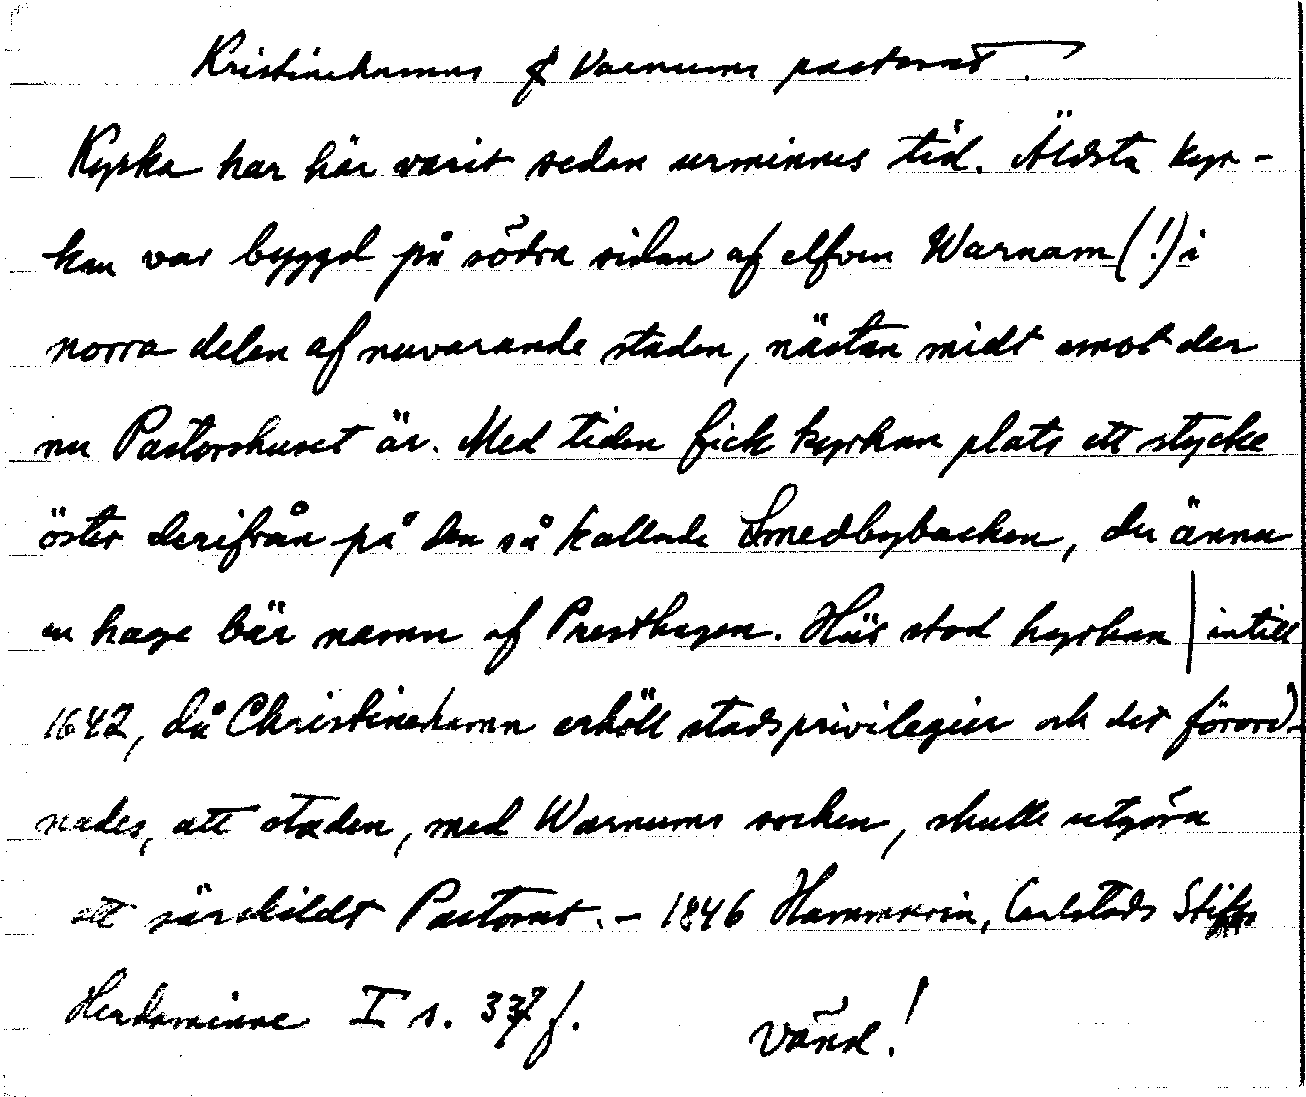 Kristinehamns & Varnums pastorat.
Kyrka har här varit sedan urminnes tid. Äldsta kyr-
kan var byggd på södra sidan af elfven Warnam (!) i
norra delen af nuvarande staden, nästan midt emot der
nu Pastorshuset är. Med tiden fick kyrkan plats ett stycke
öster derifrån på den så kallade Smedbybacken, der ännu
en hage bär namn af Presthagen. Här stod kyrkan | intill
1642, då Christinehamn erhöll stadsprivilegier och det förord-
nades, att staden, med Warnums socken, skulle utgöra
ett särskildt Pastorat. - 1846 Hammarin, Carlstads Stifts
Herdaminne I s. 337 f.
Vänd!